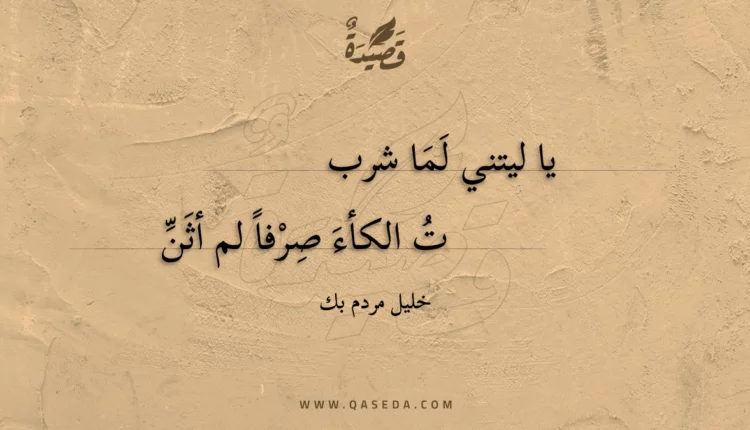 قَصِيْدَةٌ
يا ليتني لَمَا شرب
تُ الكأءَ صِرْفاً لم أثَنِّ
خليل مردم بك
WWW.QASEDA.COM